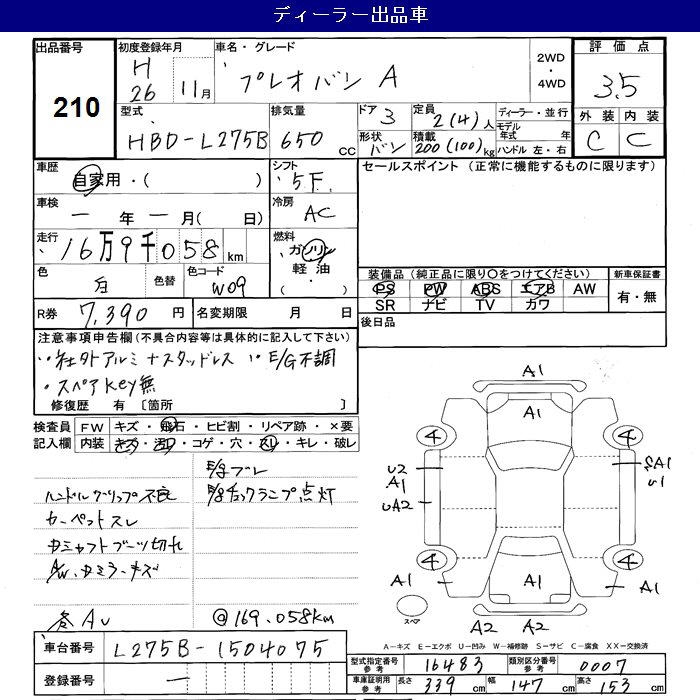 ディーラー出品車
出品番号 初度登録年月 車名・グレード 2WD・4WD 評価点
210 H26 11月 プレオバン A 3.5
型式 排気量 ドア 3 定員 2(4)人 ディーラー・並行 外装 内装
HBD-L275B 650cc 形状 バン 積載 200(100)kg モデル年式 年 ハンドル 左・右 C C
車歴 自家用・( ) シフト 5F. セールスポイント (正常に機能するものに限ります)
車検 ー年ー月( 日) 冷房 AC
走行 16万9千058km 燃料 ガソリン 軽油 ( ・ )
色 白 色替 色コード W09 装備品(純正品に限り○をつけてください) 新車保証書
PS PW ABS エアB AW 有・無
SR ナビ TV カワ
R券 7,390円 名変期限 月 日 後日品
注意事項申告欄(不具合内容等は具体的に記入して下さい)
社外アルミ+スタッドレス E/G不調
・スペアkey無
修復歴 有 [箇所 ]
検査員記入欄 FW キズ・飛石・ヒビ割・リペア跡・×要
内装 キズ・汚れ・コゲ・穴・スレ・キレ・破レ
E/gブレ
ハンドルグリップ不良 E/gチェックランプ点灯
カーペットスレ
カミャフトブーツ切れ
A/W.カミラーキズ
冬AW @169.058km
A1
4 A1 4
U2 SA1
A1 U1
UA2
4 4
A1 A1 A1
スペア A2 A2
A-キズ E-エクボ U-凹み W-補修跡 S-サビ C-腐食 XX-交換済
車台番号 L275B-1504075
型式指定番号参考 16483 類別区分番号参考 0007
登録番号 ー 車庫証明用参考 長さ 339cm 幅 147cm 高さ 153cm